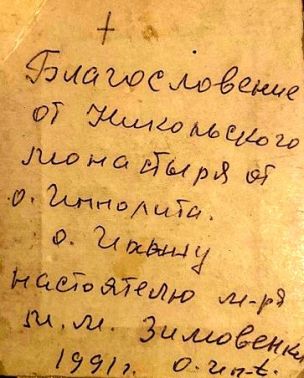 †
Благословение
от Никольского
монастыря от
о. Ипполита.
о.
настоятелю м-ря
м. м. Зимовенки
1991 г. о. Ип-т.